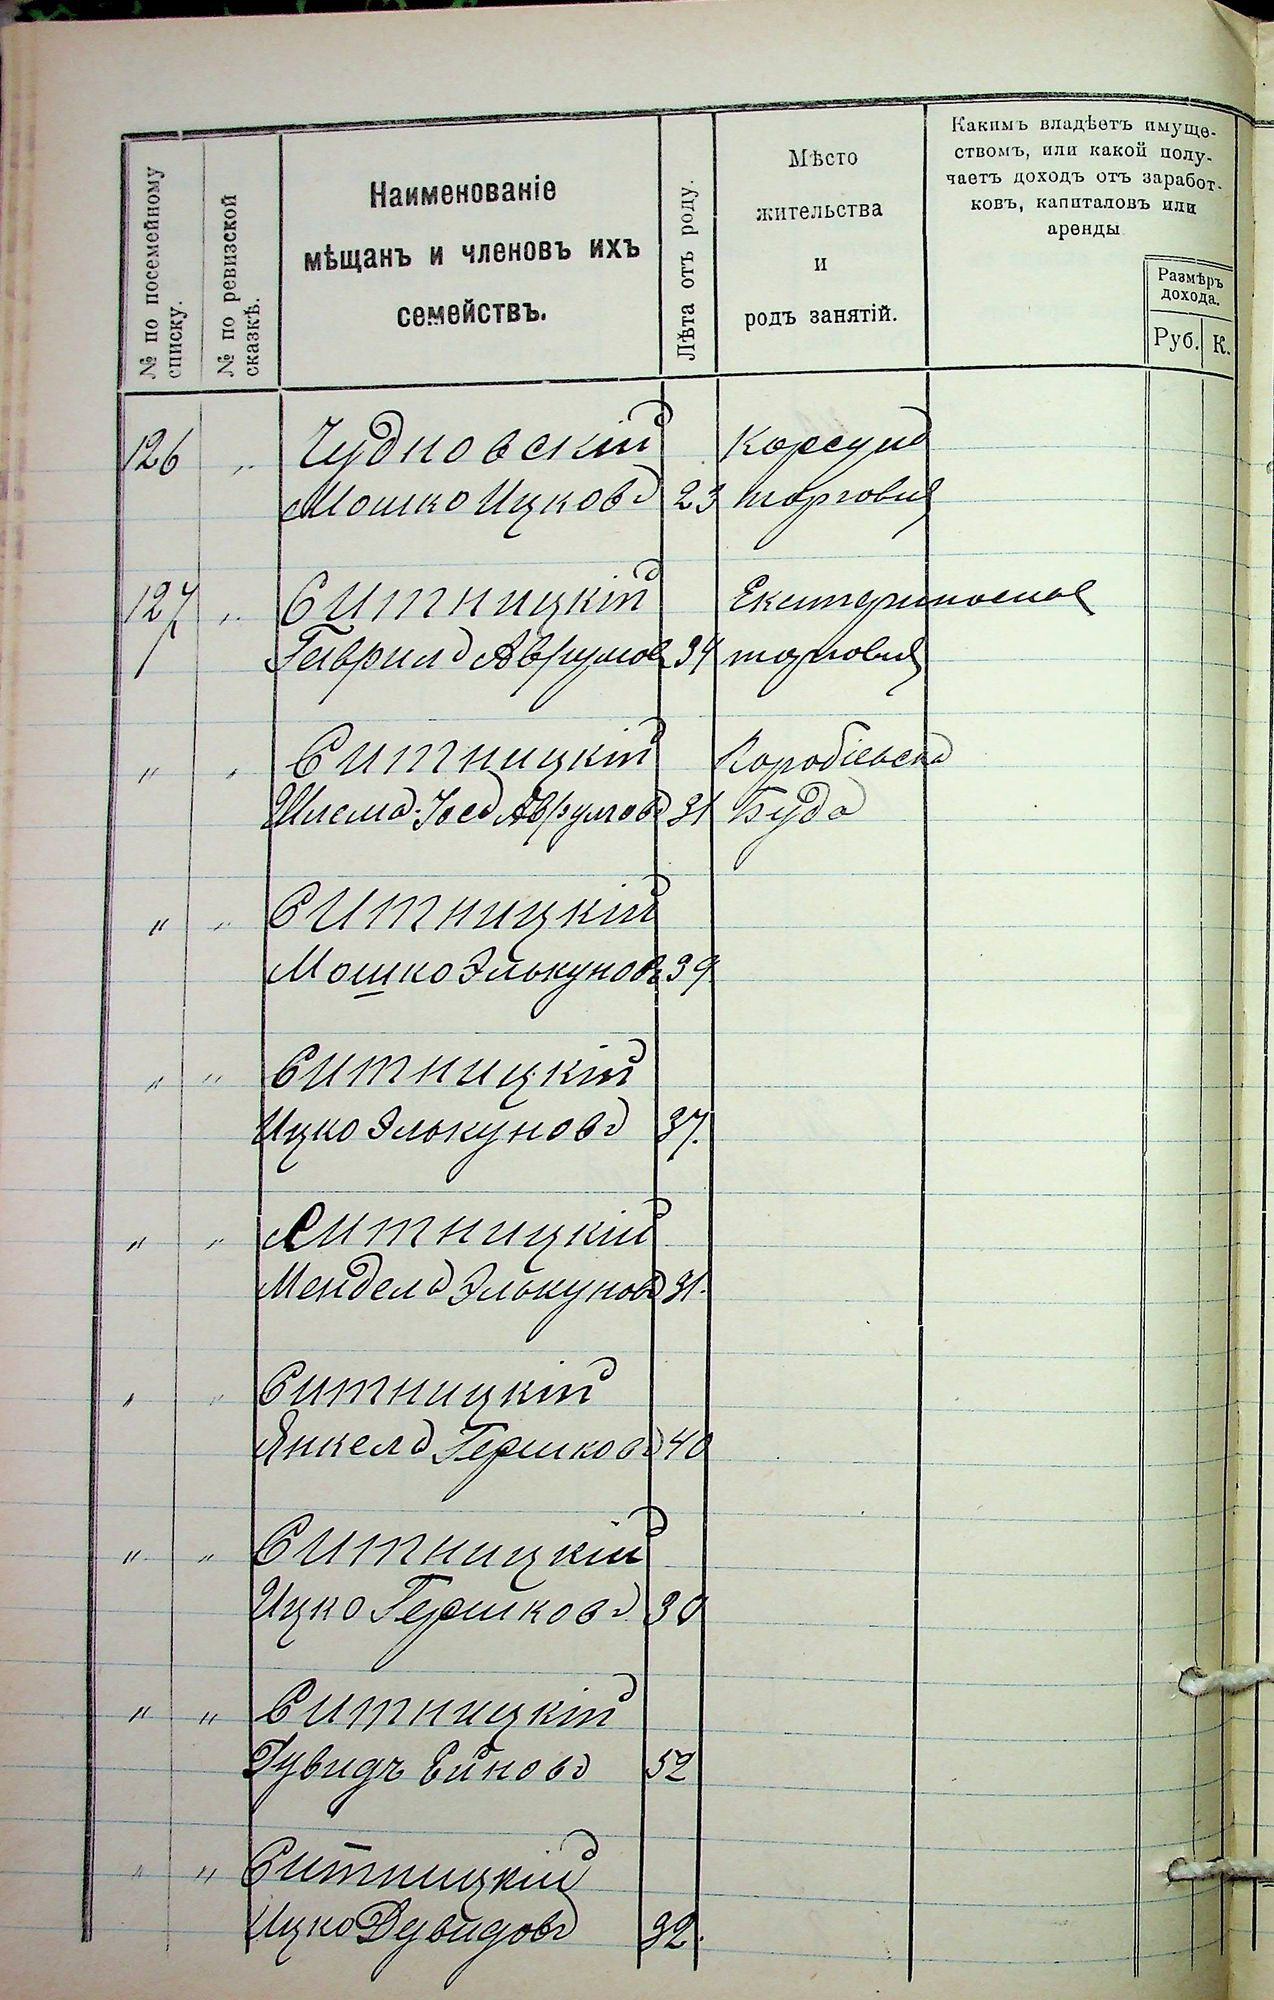 № по посемейному
списку.
№ по ревизской
сказкѣ.
Наименованіе
мѣщанъ и членовъ ихъ
семействъ.
Лѣта отъ роду.
Мѣсто
жительства
и
родъ занятій.
Какимъ владѣетъ имуще-
ствомъ, или какой полу-
чаетъ доходъ отъ заработ-
ковъ, капиталовъ или
аренды
Размѣръ
дохода.
Руб. К.
126 " Чудновскій Корсунъ
Мошко Ицковъ 23 торговля
127 " Ситницкій
Гаврилъ Аврумов 34 торговля
" " Ситницкій
Шлема-Іосъ Аврумовъ 31 Буда
" " Ситницкій
Мошко Элькуновъ 39
" " Ситницкій
Ицко Элькуновъ 37.
" " Ситницкій
Мендель Элькуновъ 31.
" " Ситницкій
Янкель Гершковъ 40
" " Ситницкій
Ицко Гершковъ 30
" " Ситницкій
52
" " Ситницкій
Ицко Дувидовъ 32.